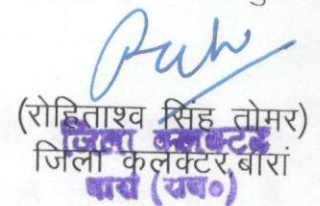 (रोहिताश्व सिंह तोमर)
जिला कलक्टर
जिला कलक्टर,बारां
बारां (राज०)